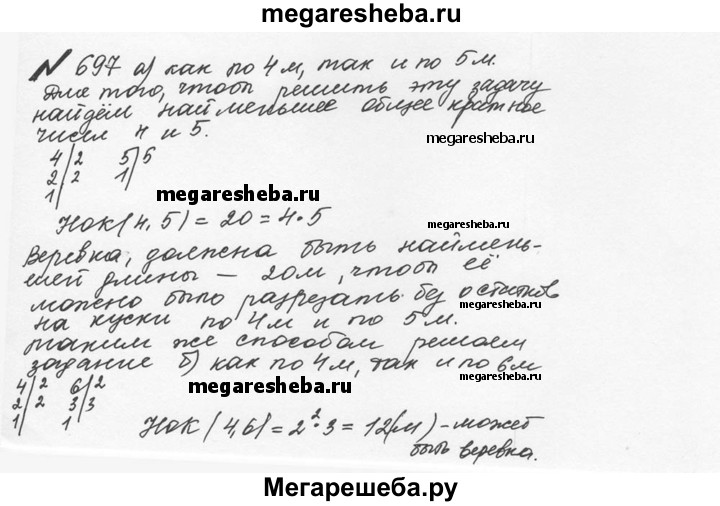 megaresheba.ru
№ 697 а) как по 4 м, так и по 5 м.
Для того, чтобы решить эту задачу
найдём наименьшее общее кратное
чисел 4 и 5.
megaresheba.ru
4|2 5|5
2|2 1|
1|
megaresheba.ru
НОК(4,5) = 20 = 4·5
megaresheba.ru
Веревка, должна быть наимень-
шей длины – 20м, чтобы её
можно было разрезать без остатков
megaresheba.ru
на куски по 4м и по 5 м.
таким же способом решаем
задание б) как по 4м, так и по 6м
megaresheba.ru
megaresheba.ru
4|2 6|2
2|2 3|3
1| 1|
НОК(4,6) = 2²·3 = 12(м) – может
быть веревка.
Мегарешеба.ру